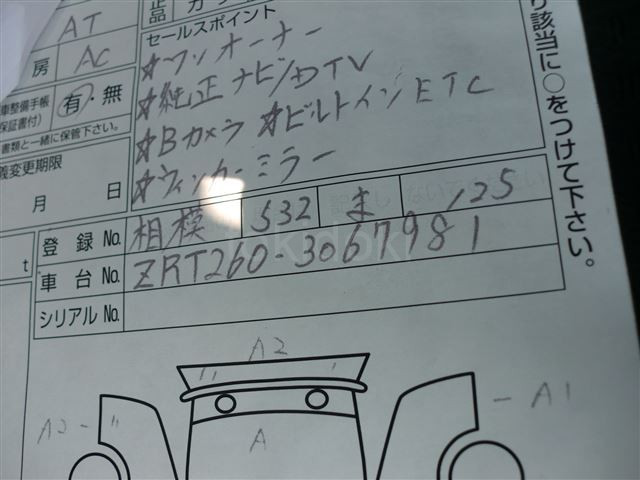 正品
AT
セールスポイント
房 AC
☆ワンオーナー
☆純正ナビ/DTV
車整備手帳
保証書付)
有・無
☆Bカメラ ☆ビルトインETC
書類と一緒に保管下さい。
☆ウィンカーミラー
義変更期限
月 日
り該当に○をつけて下さい。
登録No. 相模 532 ま 125
t
車台No. ZRT260-3067981
シリアルNo.
A2
A2
A1
A